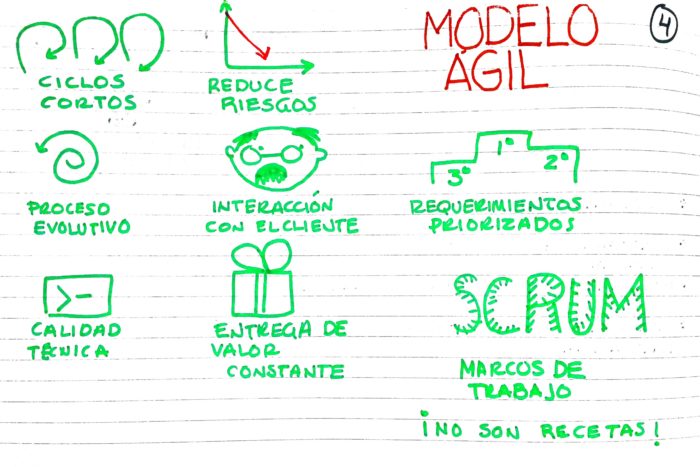 MODELO
ÁGIL
4
CICLOS
CORTOS
REDUCE
RIESGOS
PROCESO
EVOLUTIVO
INTERACCIÓN
CON EL CLIENTE
1°
2°
3°
REQUERIMIENTOS
PRIORIZADOS
>-
CALIDAD
TÉCNICA
ENTREGA DE
VALOR
CONSTANTE
SCRUM
MARCOS DE
TRABAJO
¡NO SON RECETAS!